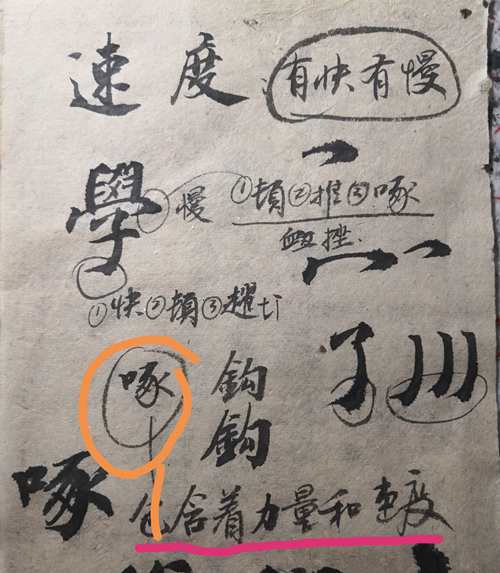 速度 有快有慢
學 慢 ①頓②推③啄
挫
①快②頓③趯
啄 鈎
鈎
啄
包含着力量和速度